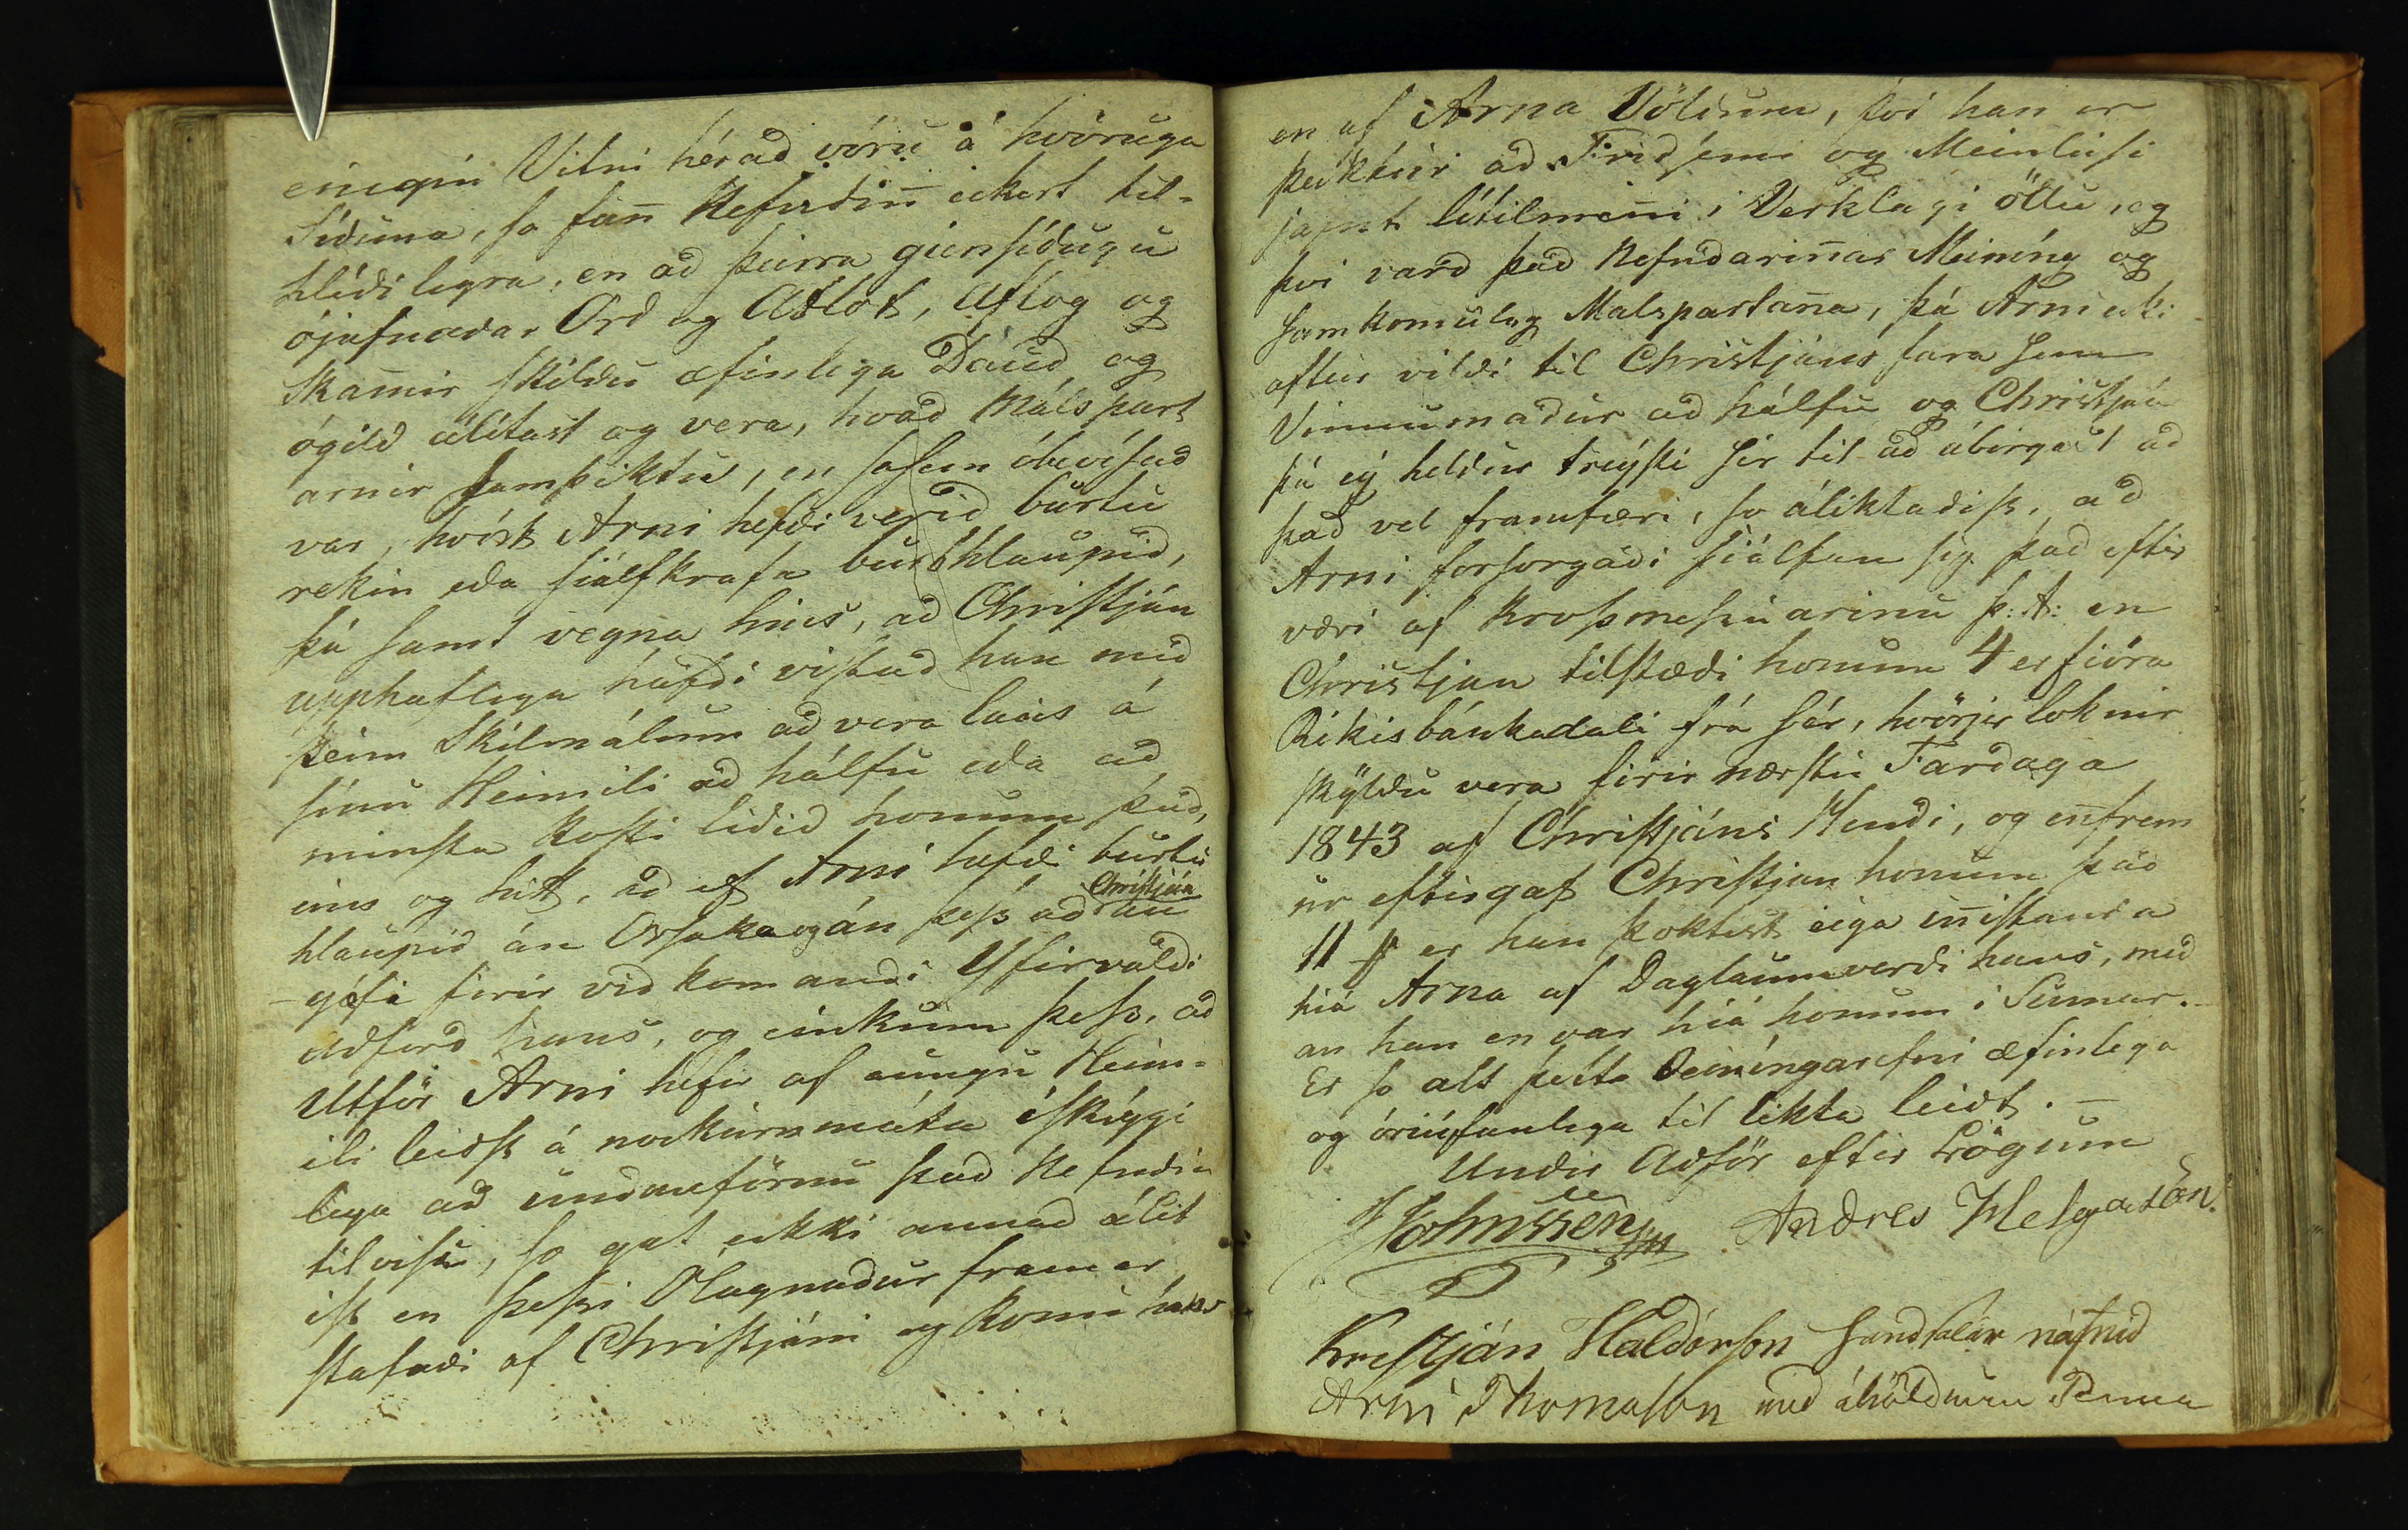 eingin Vitni hérad vóru á hvöruga
Síduna, so fan̄ Nefndin̄ eckert til-
hlídilegra, en ad þeirra giensídugu
ójafnadar Ord og Atlot, Aflog og
Skam̄ir skildu æfinlega Daud og
ógild álítast og vera, hvad Málspart
arnir samþiktu, en sosem óbevísad
var, hvórt Arni hefdi verid burtu
rekin eda siálfkrafa burthlaupid,
þá samt vegna hins, ad Christján
upphaflega hafdi vistad han med
þeim Skilmálum ad vera laus á
sinu Heimili ad hálfu eda ad
minsta Kosti lidid honum þad,
eins og hitt, ad ef Arni hefdi burtu
Christján
hlaupid án Orsaka og án þess ad
gjæfi firir vidkomandi Yfirvaldi
adferd hans, og einkum þess, ad
Utför Arni hefir af aungu Heim-
ili leidst á nockurnmáta ískíggi
lega ad undanförnu þad Nefndin
til vissi, so gat eckki annad álit
ist en þessi Olagnadur framar
stafadi af Christjáni og Konu hans
en af Arna Völdum, því han er
þecktur ad Fridsemi og Meinleisi
samt lítilmen̄i í Verklagi öllu, og
því vard þad Nefndarin̄ar Meiníng og
Samkomulag Malspartan̄a, þá Arni ecki
aftur vildi til Christjáns fara sem
Vinnumadur ad hálfu og Christján
þá ej heldur treisti sér til ad ábirgast ad
þad vel framfæri, so áliktadist, ad
Arni forsorgadi siálfan sig þad eftir
væri af Krossmessuárinu þ: A: en
Christjan tilstædi honum 4 er fióra
Ríkisbánkadali frá sér, hvörjir loknir
skyldu vera firir næstu Fardaga
1843 af Christjáns Hendi, og en̄frem
ur eftirgaf Christjan honum þad
11 er han þoktist eiga in̄istanda
hiá Arna af Daglaunaverdi hans, med
an han en var hiá honum í Sumar.
Er so alt þetta Deiníngarefni æfinlega
og óriúfanlega til likta leidt. –
Undir Adför eftir Lögum
JJohnssen Andres Helgason.
Kristján Haldórson handsalar nafnid
Arni Thomasson med áhöldnum Penna